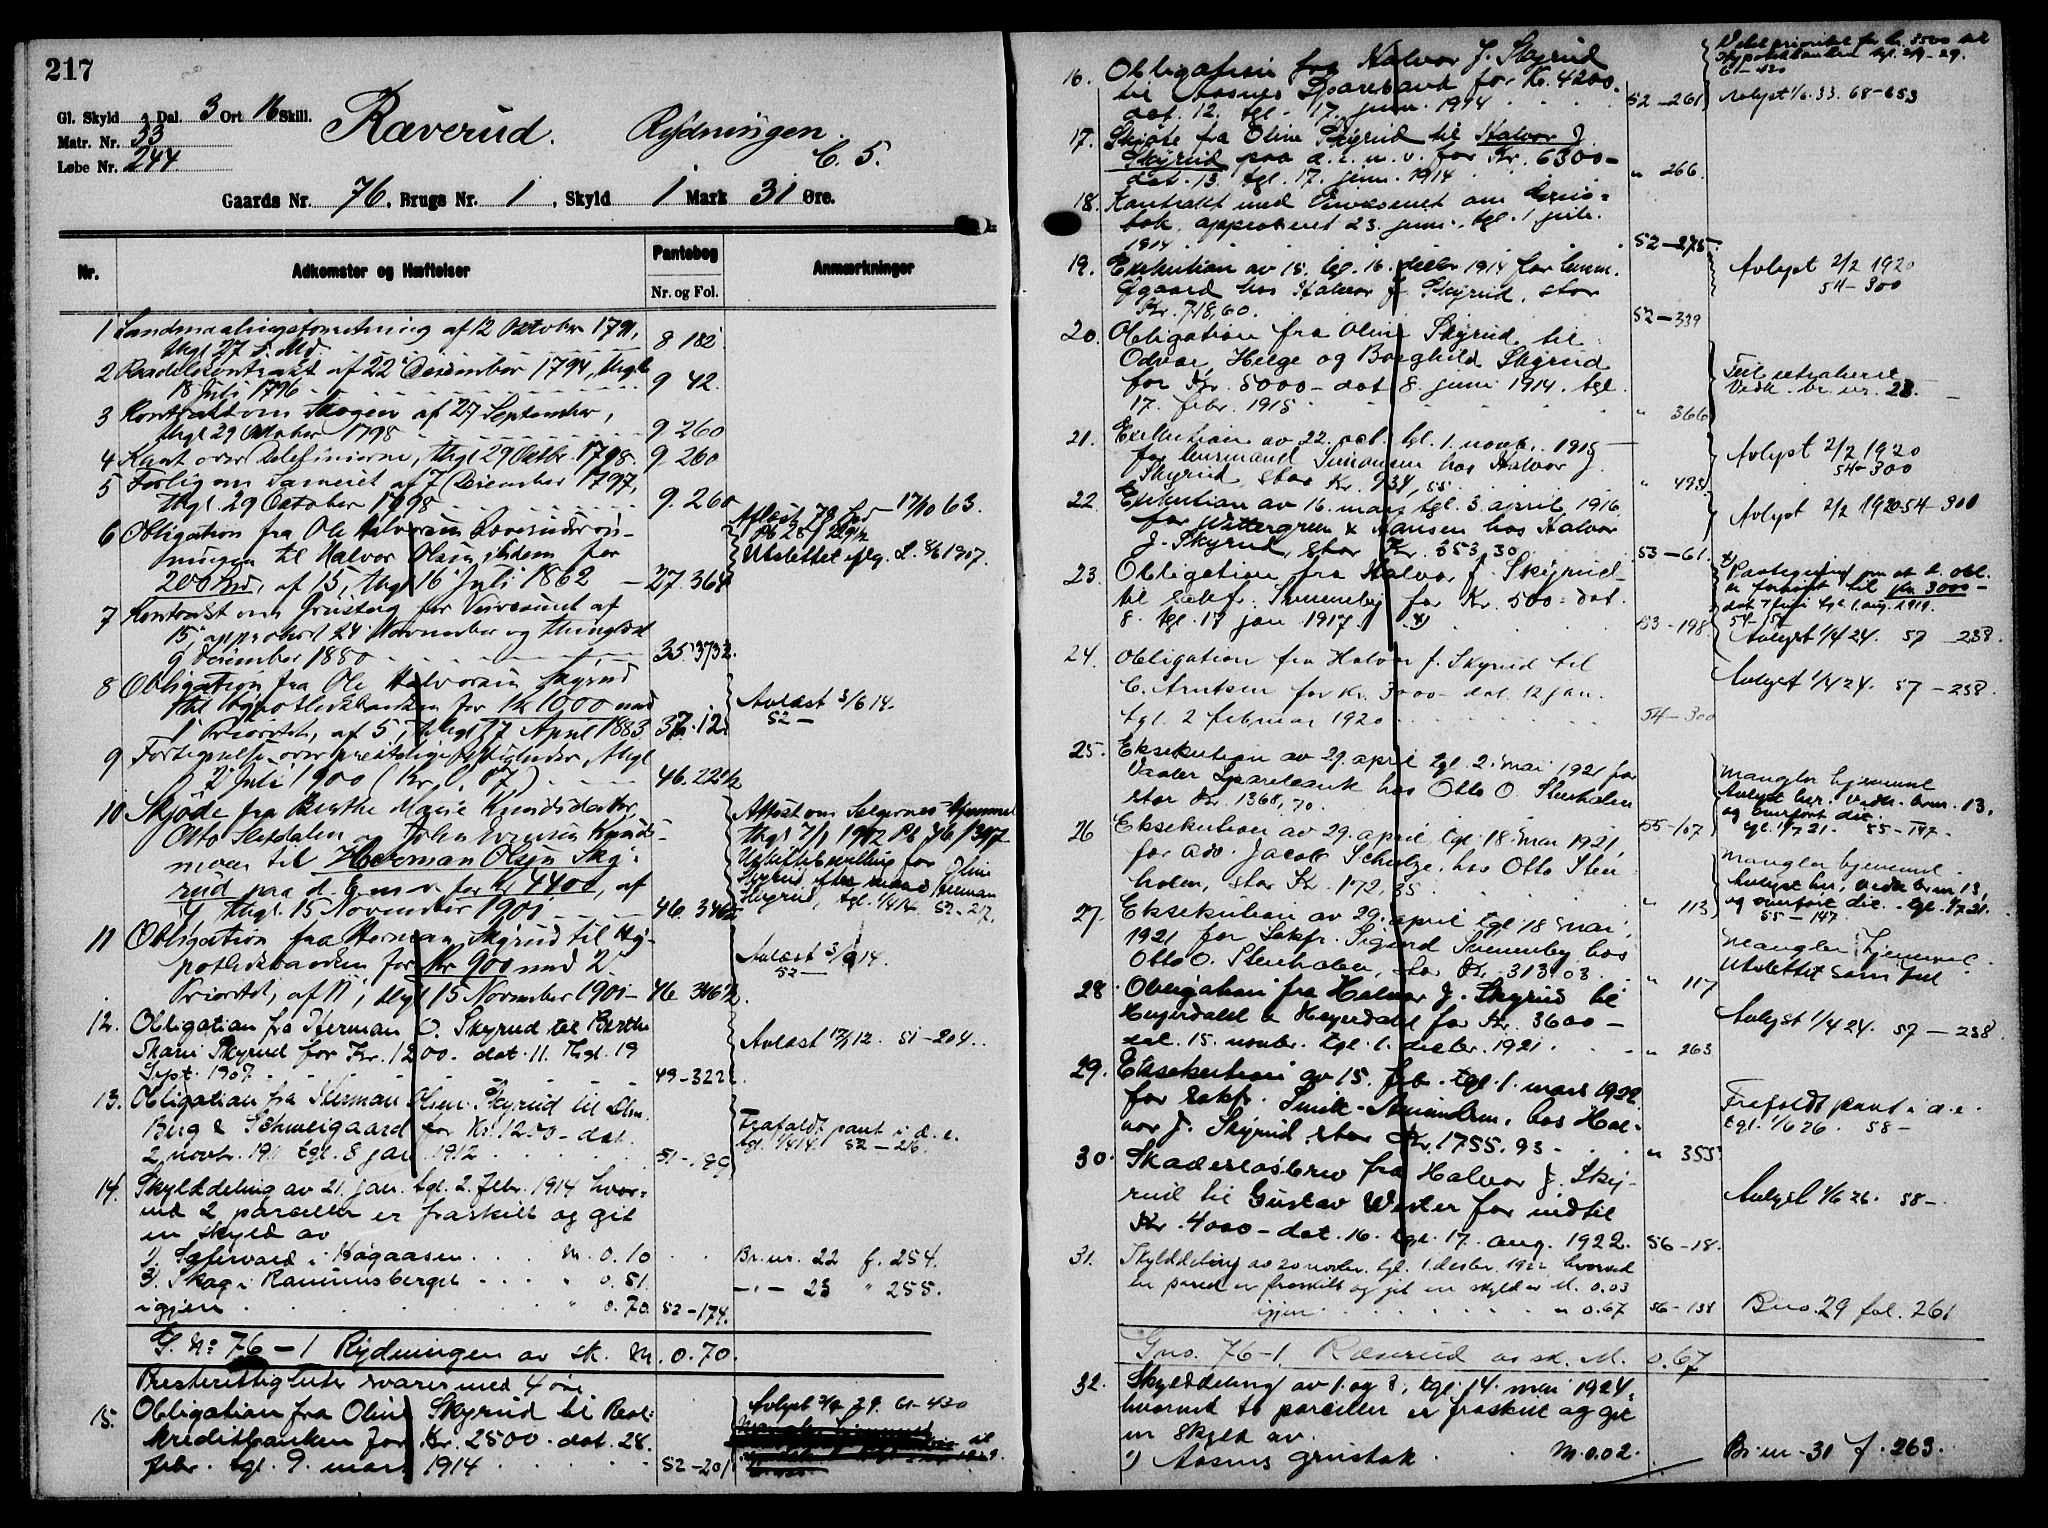 217
Gl. Skyld „ Dal. 3 Ort 16 Skill.
Matr. Nr. 53
Løbe Nr. 244.
Ræverud. Rydningen.
C. 5.
Gaards Nr. 76, Brugs Nr. 1, Skyld 1 Mark 31 Øre.
Nr. Adkomster og Hæftelser Pantebog Anmærkninger
Nr. og Fol.
1 Landmaalingsforretning af 12 Oktober 1791,
thgl 27 s. Md. 8 182
2 Raadelskontrakt af 22 Desember 1794, thgl
18 Juli 1796 9 42.
3 Kontrakt om Skogen af 27 September,
thgl 29 Oktober 1798 9 260
4 Kart over Delelinierne, thgl 29 Oktbr. 1798. 9 260
5 Forlig om Sameiet af 7 Desember 1797,
thgl. 29 October 1798 9. 260
6 Obligation fra Ole Halvorsen
ningen til Halvor Olsen ibidem for
200 Spd, af 15, thgl 16 Juli 1862 27. 364
Aflæst 17/10 63.
Udslettet eflg. L. 8/6 1907.
7 Kontrakt om Grustag for Veivæsenet af
15, approbert 24 November og thinglæst
9 Desember 1880 35. 373½.
8 Obligation fra Ole Halvorsen Skyrud
til Hypothekbanken for Kr 1000 med
1 Prioritet, af 5, thgl 17 April 1883 37. 12.
Avlæst 3/6 14.
52 —
9 Fortegnelse over præstelige Rettigheder, thgl
2 Juli 1900 (Kr. 0,07) 46. 221½
10 Skjøde fra Berthe Marie Knudsdatter,
Otto Sletdalen og John Evensen Knuds-
moen til Herman Olsen Sky-
rud paa d. E. m v. for Kr 4400, af
9, thgl. 15 November 1901 46. 346½
Attest om Selgernes Hjemmel
thgl 7/1 1902 Pb 46/347
Uskiftebevilling for Oline
Skyrud efter mand Herman
Skyrud, tgl. 1/4 14. 52-217.
11 Obligation fra Herman Skyrud til Hy-
pothekbanken for Kr 900 med 2.
Prioritet, af 11, thgl 15 November 1901 46 346½.
Avlæst 3/6 14.
52 —
12. Obligation fra Herman O. Skyrud til Berthe
Marie Skyrud for Kr. 1200. dat. 11. thgl. 19
Sept. 1907. 49-322½
Avlæst 17/12. 51-204.
13. Obligation fra Herman Olsen Skyrud til Elm.
Berg & Schweigaard for Kr. 1200 - dat.
2 novbr. 1911 tgl. 8 jan. 1912 51-199
Frafaldt pant i d. e.
tgl. 1/4 14. 52-216.
14. Skylddeling av 21. jan. tgl. 2. febr. 1914 hvor-
ved 2 parceller er fraskilt og git
en skyld av
1) Sætervold i Høgaasen . . . M. 0.10 Br. nr. 22 f. 254.
2) Skog i Ramunsberget . . . „ 0.51 — „ — 23 „ 255.
igjen „ 0.70 52-174.
G. No 76-1 Rydningen av sk. M. 0.70.
Presterettigheter svares med 4 øre.
15. Obligation fra Oline Skyrud til Real-
kreditbanken for Kr. 2500 - dat. 28.
febr. tgl. 9. mars 1914 52-201
Avlyst 2/9 29. 61-420
16. Obligation fra Halvor J. Skyrud
til Aasnes Sparebank for Kr. 4200.
dat. 12. tgl. 17. juni 1914 52-261
Veket prioritet for kr. 3500 til
Hypotekbanken tgl. 2/9-29.
61-420
Avlyst 1/6. 33. 68-653
17. Skjøte fra Oline Skyrud til Halvor J.
Skyrud paa d. e. m. v. for Kr. 6300 -
dat. 13. tgl. 17. juni 1914 „ 266.
18. Kontrakt med Veivæsenet om Grus-
tak, approberet 23. juni, tgl. 1 juli
1914 52-275.
19. Exekution av 15. tgl. 16. decbr 1914 for
Øgaard hos Halvor J. Skyrud, stor
Kr. 718,60. 52-339
Avlyst 2/2 1920
54-300
20. Obligation fra Oline Skyrud til
Odvar, Helge og Borghild Skyrud
for Kr. 5000 - dat 8. juni 1914. tgl.
17. febr. 1915 „ 366
Feil extraheret
Vedk. br. nr. 23.
21. Exekution av 22. oct. tgl. 1. novbr. 1915
for Simonsen hos Halvor J.
Skyrud, stor Kr. 934,55. „ 495
Avlyst 2/2 1920
54-300
22. Exekution av 16. mars tgl. 3. april 1916
for Wettergreen & Hansen hos Halvor
J. Skyrud, stor Kr. 353,30 53-61.
Avlyst 2/2 1920 54-300
23. Obligation fra Halvor J. Skyrud
til sakfr. Svenneby for Kr. 500 - dat.
8. tgl. 17 jan 1917. x) 53-198.
x) Paategning om at h. obl.
er forhøiet til kr. 3000 -
dat 7 juli tgl. 1. aug. 1919.
54-54
Avlyst 1/4 24. 57-238.
24. Obligation fra Halvor J. Skyrud til
C. Arntsen for Kr. 3000 - dat. 12 jan.
tgl. 2 februar 1920 54-300
Avlyst 1/4 24. 57-238.
25. Eksekution av 29. april tgl. 2. mai 1921 for
Vaaler Sparebank hos Otto O. Stenholen
stor Kr. 1368,70. 55-107
Mangler hjemmel
Avlyst her. Vedk. br. nr. 13.
og overført dit.
tgl. 1/7 21. 55-147.
26 Eksekution av 29. april, tgl. 18 mai 1921,
for adv. Jacob Schulze, hos Otto Sten-
holen, stor Kr. 172,35 „ 113
Mangler hjemmel.
Avlyst her, vedk. br. nr. 13,
og overført dit. tgl. 1/7 21.
55-147
27. Eksekution av 29. april tgl 18 mai
1921 for Sakfr. Sigurd Svenneby hos
Otto O. Stenholen, stor Kr. 313.03 „ 117
Mangler hjemmel.
Utslettet som feil
28. Obligation fra Halvor J. Skyrud til
Heyerdahl & Heyerdahl for Kr. 3600 -
dat. 15. novbr. tgl. 1. decbr. 1921 „ 263
Avlyst 1/4 24. 57-238.
29. Eksekution av 15. feb. tgl. 1. mars 1922
for Sakfr. Smith-Amundsen, hos Hal-
vor J. Skyrud stor Kr. 1755.93 - „ 353
Frafaldt pant i d. e.
tgl. 1/6 26. 58-
30. Skadesløsbrev fra Halvor J. Sky-
rud til Gustav Wester for indtil
Kr. 4000 - dat. 16. tgl. 17. aug. 1922. 56-18.
Avlyst 1/6 26. 58-
31. Skylddeling av 20 novbr. tgl. 1. desbr. 1922 hvorved
en parcel er fraskilt og git en skyld av M. 0.03
igjen „ 0.67 56-138 Bno. 29 fol. 261
Gno. 76-1. Ræverud av sk. M. 0.67
32. Skylddeling av 1. og 8., tgl. 14. mai 1924,
hvorved to parceller er fraskilt og git
en skyld av.
1) Aasnes grustak . M. 0.02. Br. nr. 31 f. 263.